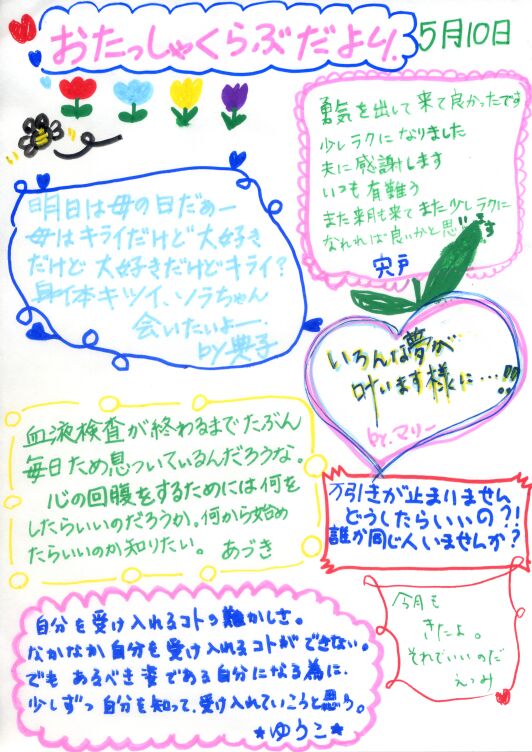 おたっしゃくらぶだより
5月10日
勇気を出して来て良かったです
少しラクになりました
夫に感謝します
いつも有難う
また来月も来てまた少しラクに
なれれば良いかと思います
宍戸
明日は母の日だぁー
母はキライだけど大好き
だけど大好きだけどキライ?
身体キツイ、ソラちゃん
会いたいよー.
by典子
いろんな夢が
叶います様に…!!
by.マリー
血液検査が終わるまでたぶん
毎日ため息ついているんだろうな。
心の回腹をするためには何を
したらいいのだろうか。何から始め
たらいいのか知りたい。 あづき
万引きが止まりません
どうしたらいいの?!
誰か同じ人いませんか?
今月も
きたよ。
それでいいのだ
えつみ
自分を受け入れるコトの難かしさ。
なかなか自分を受け入れるコトができない。
でもあるべき姿である自分になる為に、
少しずつ自分を知って、受け入れていこうと思う。
★ゆうこ★